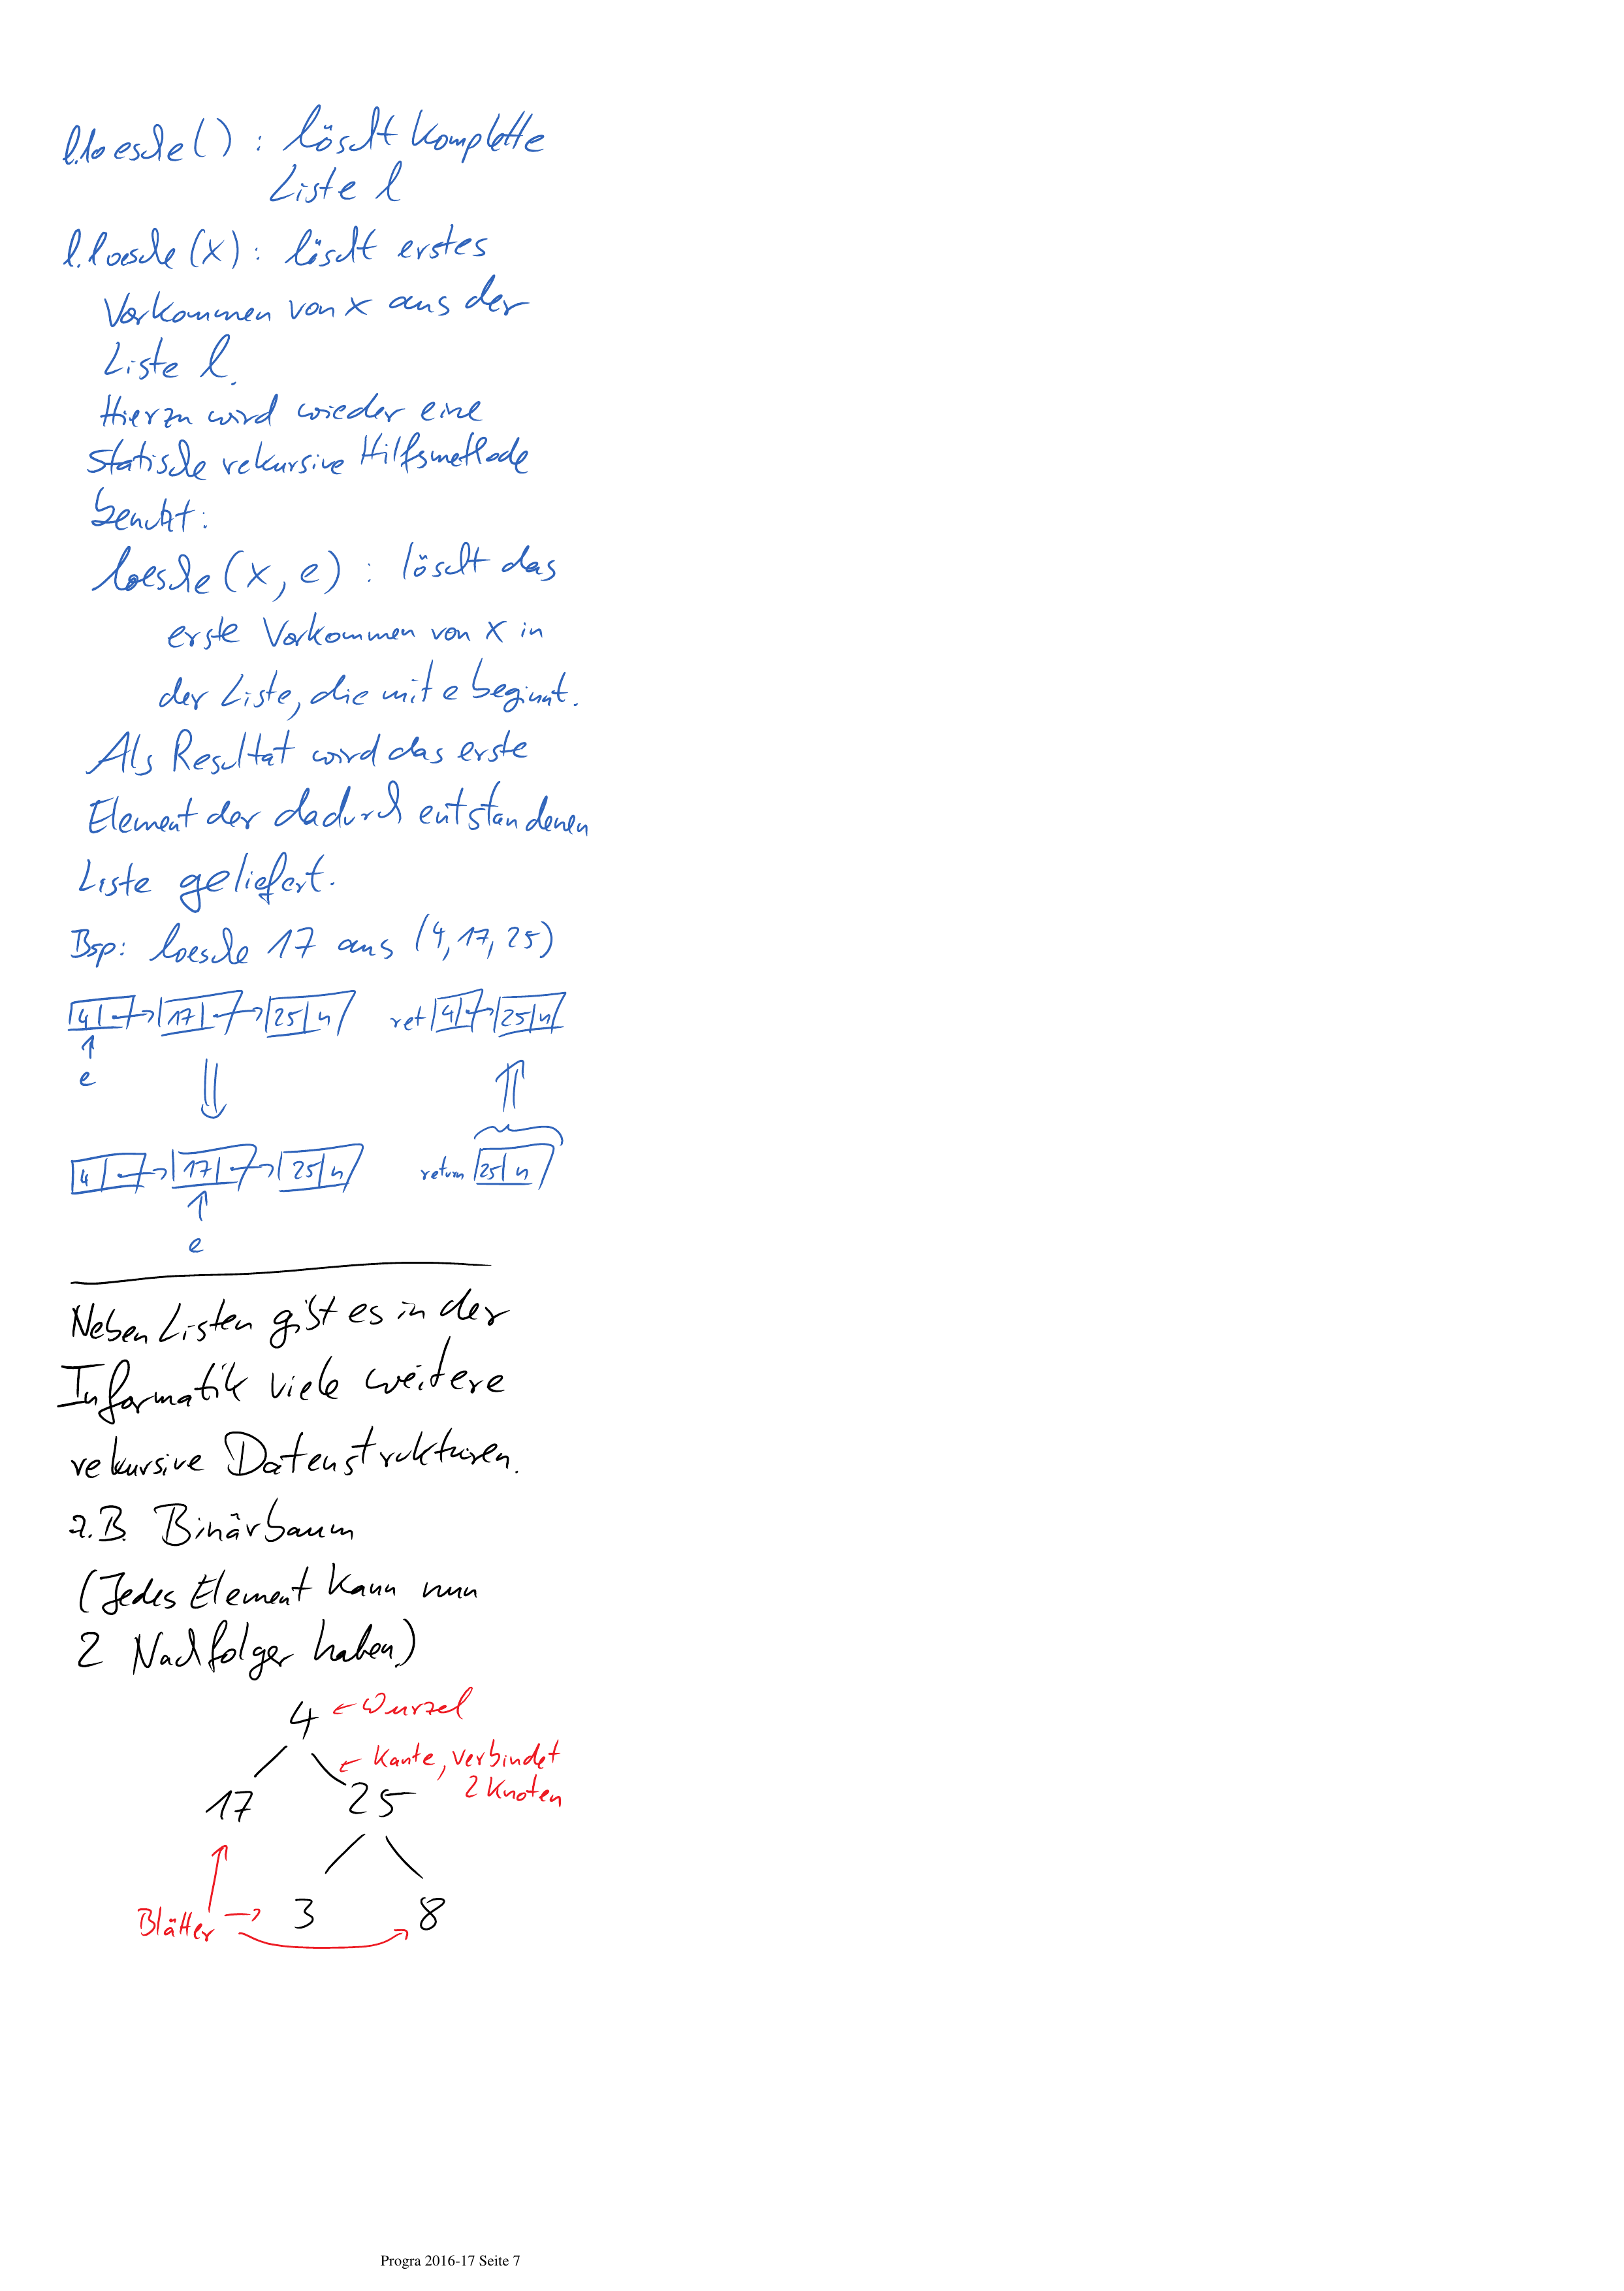 l.loesche() : löscht komplette
Liste l
l.loesche(x) : löscht erstes
Vorkommen von x aus der
Liste l.
Hierzu wird wieder eine
statische rekursive Hilfsmethode
benutzt:
loesche(x, e) : löscht das
erste Vorkommen von x in
der Liste, die mit e beginnt.
Als Resultat wird das erste
Element der dadurch entstandenen
Liste geliefert.
Bsp: loesche 17 aus (4, 17, 25)
4 → 17 → 25 n ret 4 → 25 n
e
4 → 17 → 25 n return 25 n
e
Neben Listen gibt es in der
Informatik viele weitere
rekursive Datenstrukturen.
z.B. Binärbaum
(Jedes Element kann nun
2 Nachfolger haben.)
4 ← Wurzel
← Kante, verbindet
2 Knoten
17 25
Blätter → 3 8
Progra 2016-17 Seite 7